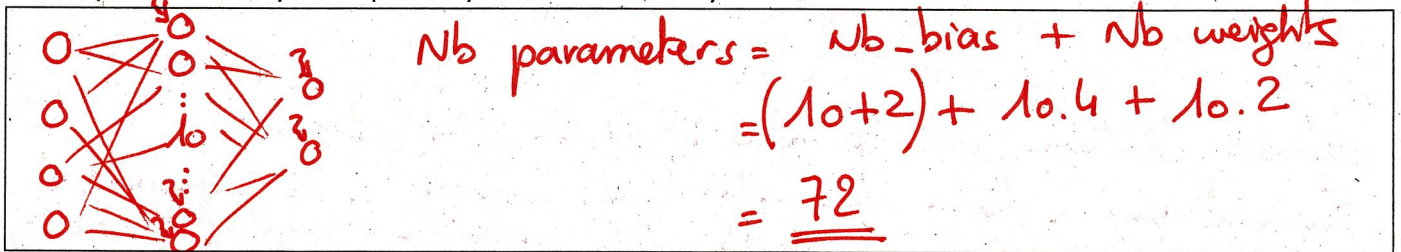 Nb parameters = Nb_bias + Nb weights
= (10+2) + 10.4 + 10.2
10
= 72